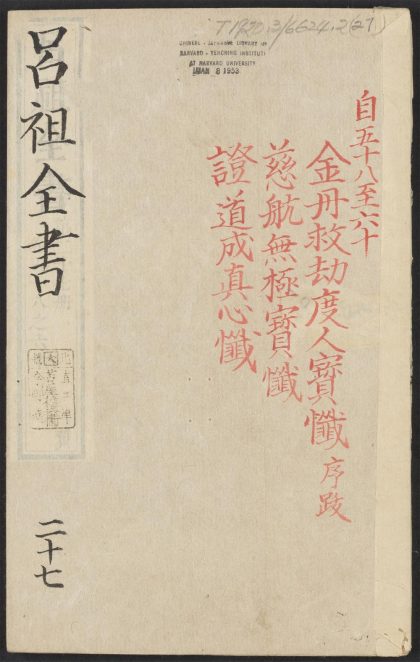 T 1920.3/6624.2(27)
CHINESE - JAPANESE LIBRARY OF
HARVARD - YENCHING INSTITUTE
AT HARVARD UNIVERSITY
JAN 8 1953
自五十八至六十
金丹救劫度人寶懺 序跋
慈航無極寶懺
證道成真心懺
呂祖全書
二十七